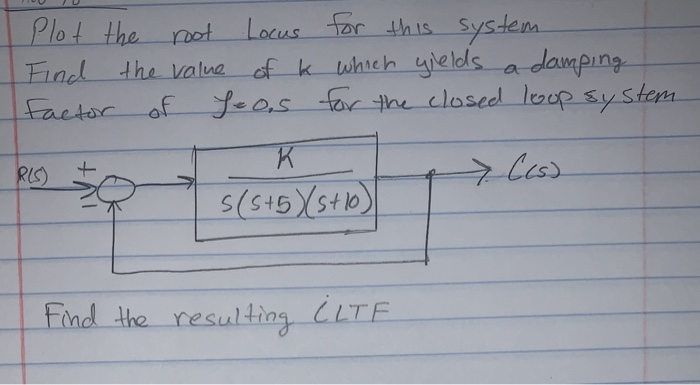 Plot the root Locus for this system
Find the value of k which yields a damping
factor of ζ=0,5 for the closed loop system
R(s) + K C(s)
− s(s+5)(s+10)
Find the resulting CLTF